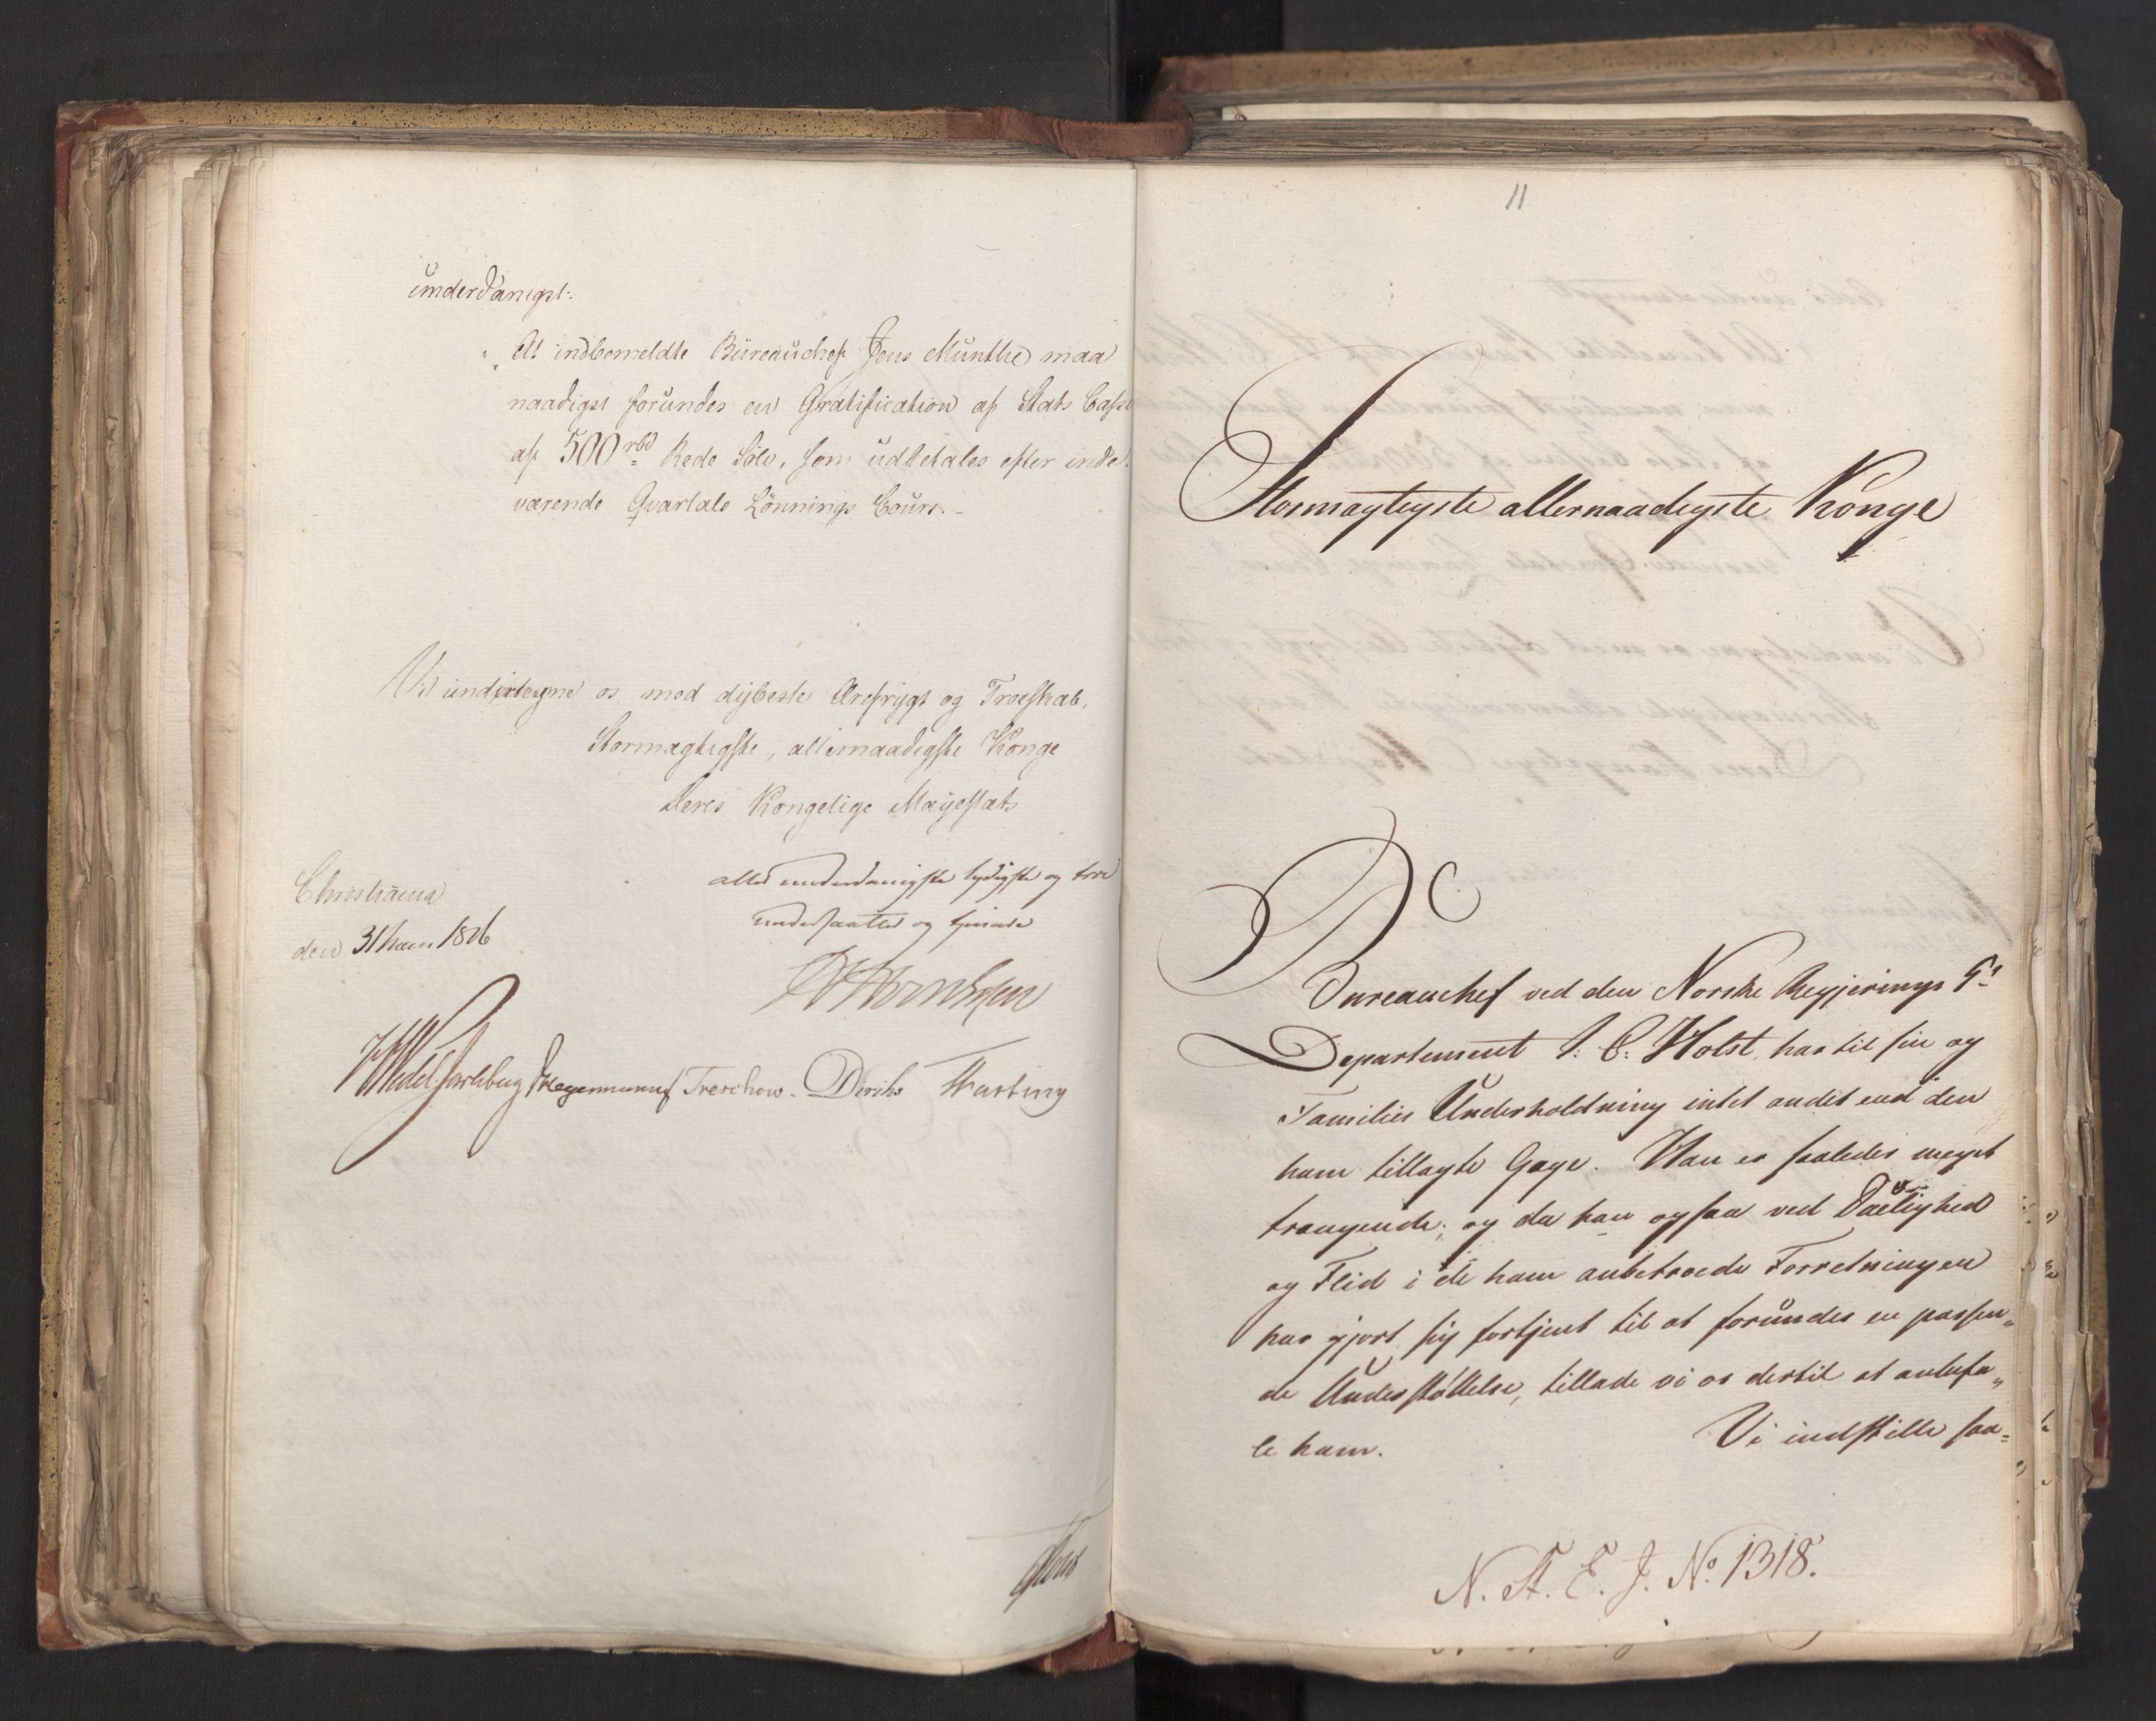 underdanigst:
„ At indbemeldte Büreauchef Jens Munthe maa
naadigst forundes en Gratification af Stats Cassen
af 500 rbd rede Sölv, som udbetales efter inde-
værende Qvartals Lønnings Cours.-
Vi undertegne os med dybeste Ærefrygt og Troeskab,
Stormægtigste, allernaadigste Konge
Deres Kongelige Mayestæts
Christiania
den 31 1816
allerunderdanigste lydigste og troe
undersaatter og tjenere
Wedel Jarlsberg Hegermann Treschow. Diriks Mariboe
11
Stormægtigste allernaadigste Konge
Bureauchef ved den Norske Regjerings 5te
Departement J: C: Holst, har til sin og
Families Underholdning intet andet end den
ham tillagte Gage. Han er saaledes meget
trængende; og da han ogsaa ved Duelighed
og Flid i de ham anbetroede Forretninger
har gjort sig fortjent til at forundes en passen„
de Understøttelse, tillade vi os dertil at anbefa„
le ham.
Vi indstille saa=
N. A. E. J. No. 1318.